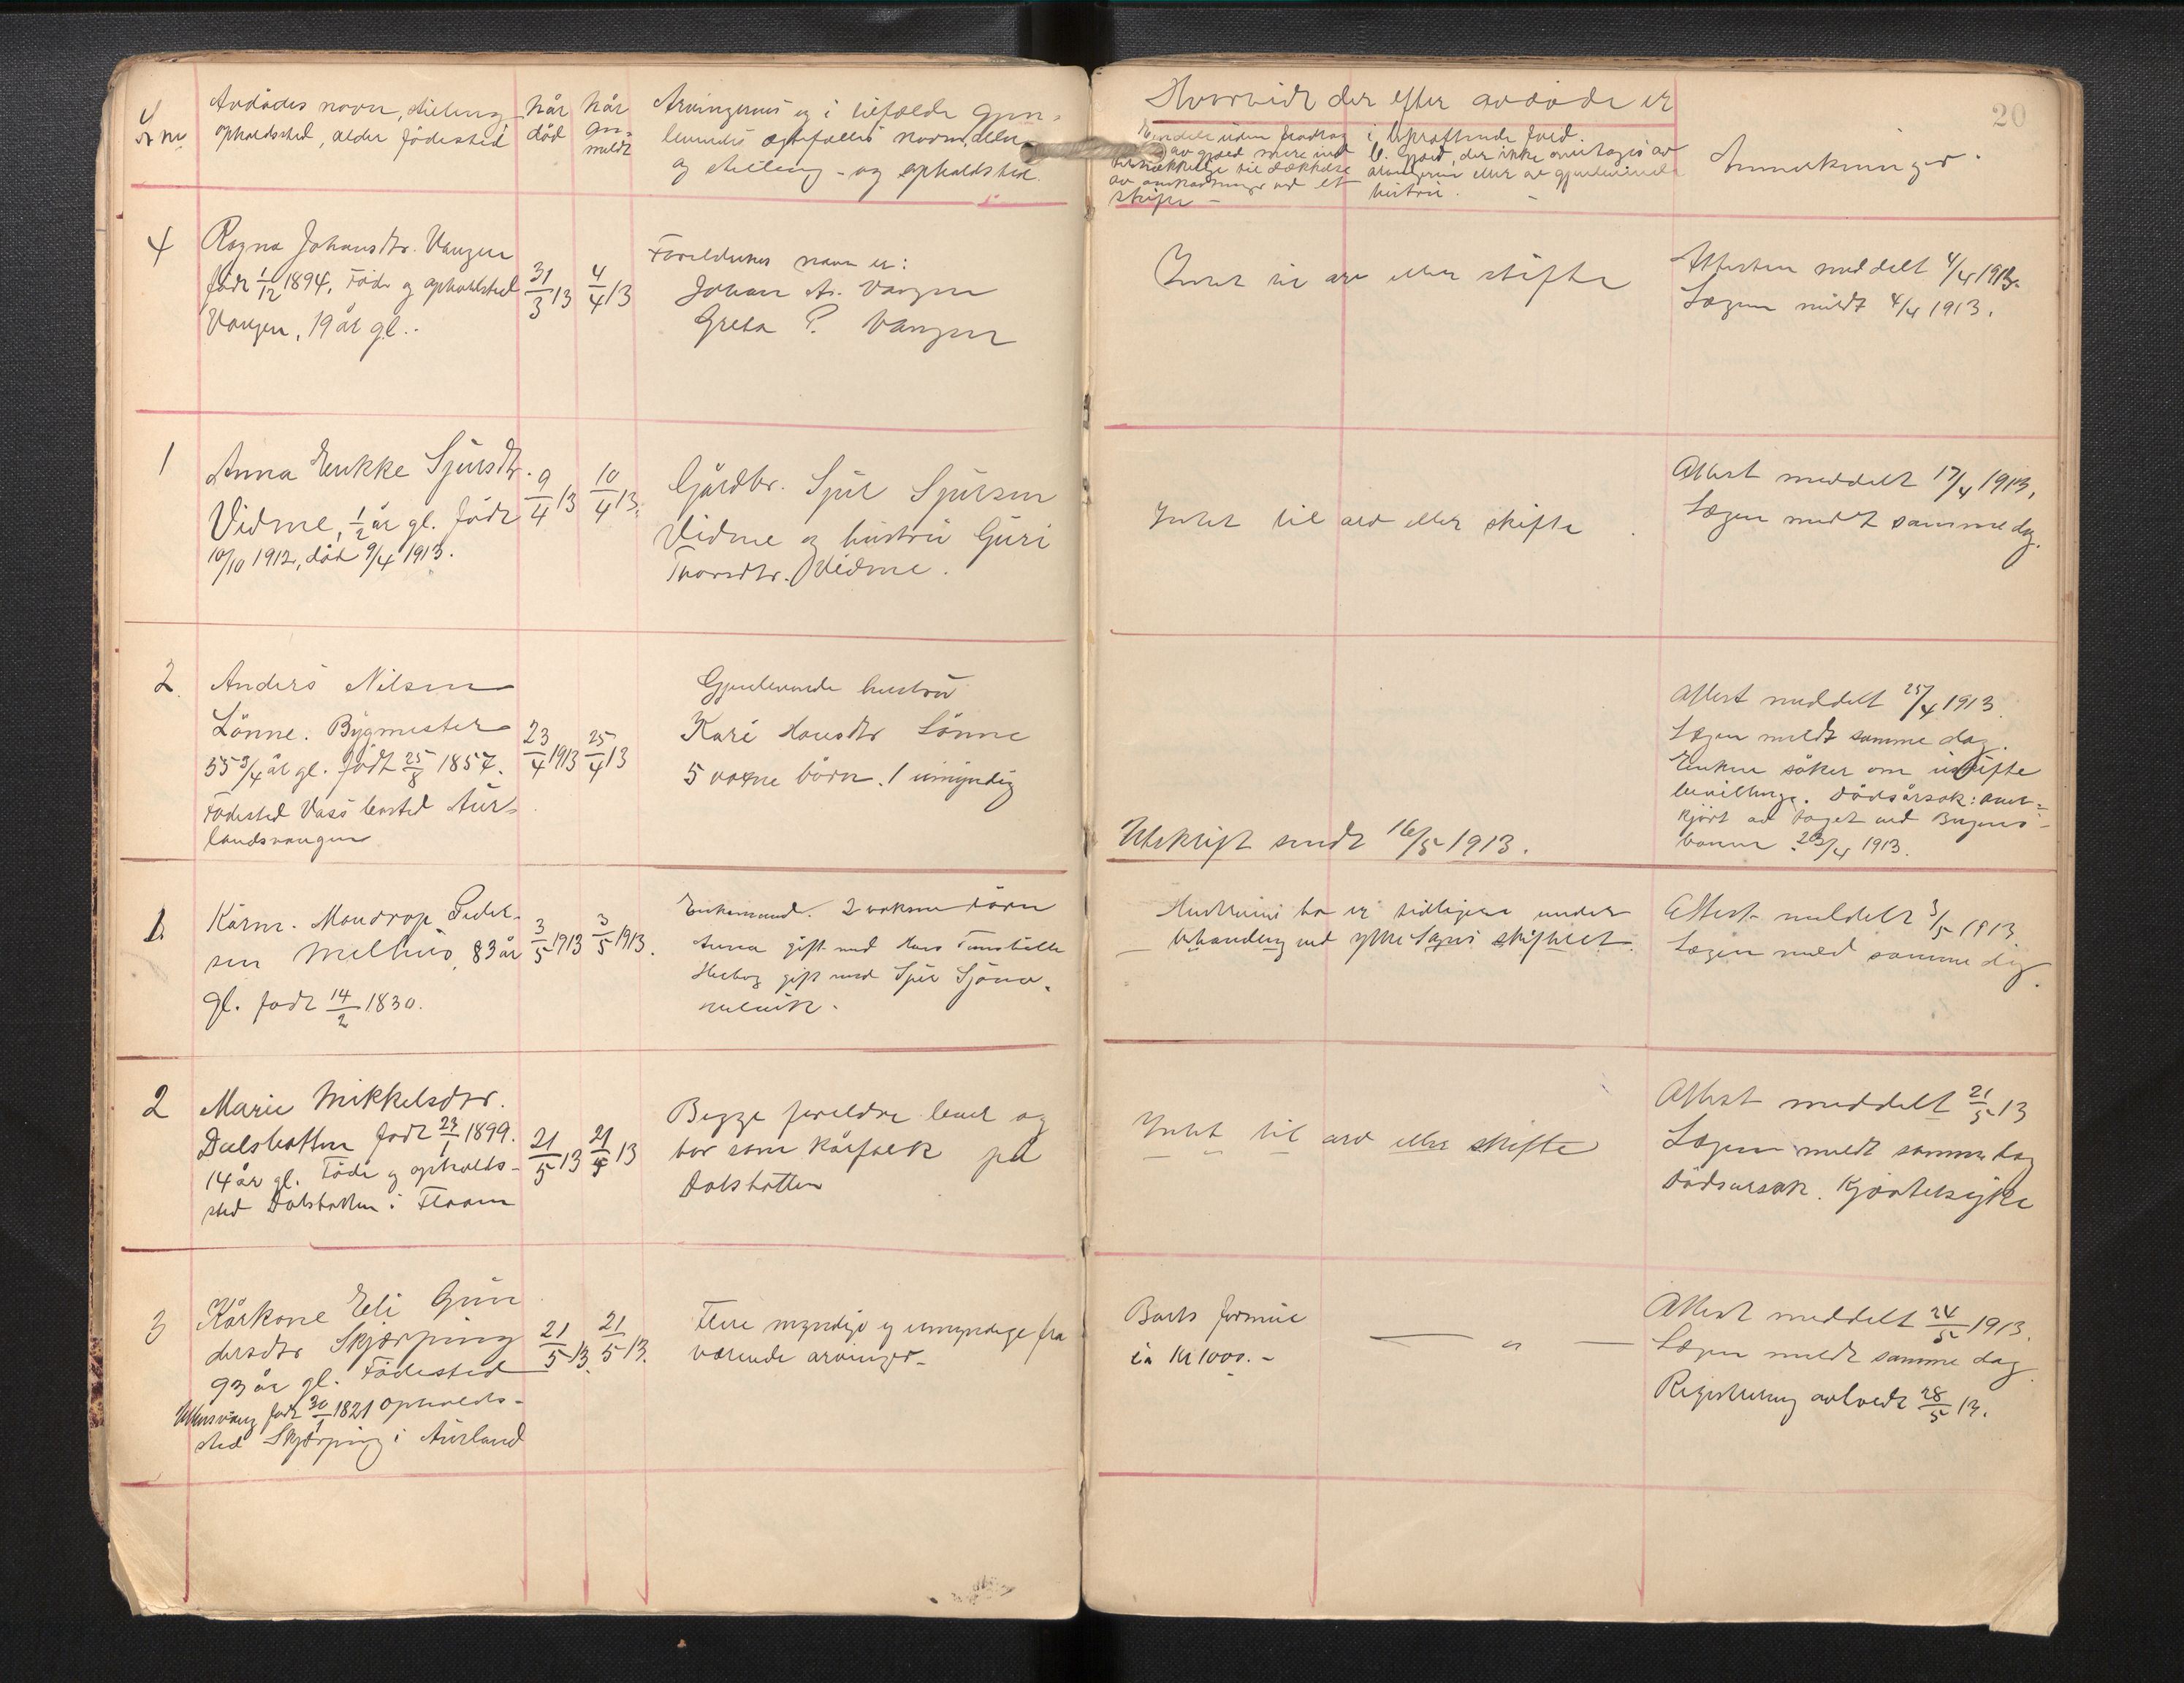 20
Avdödes navn, stilling
opholdssted, alder födested
Når
död
Når
an-
meldt
Arvingernes og i tilfælde gjen-
levendes egtefælles navn, alder
og stilling - og opholdsted.
Hvorvidt der efter avdöde er
av gjæld mere end
tilstrækkelig til dækkelse
av omkostninger ved et
skifte -
b. Gjæld, der ikke overtages av
arvingerne eller av gjenlevende
hustru.
Anmerkninger.
4
Ragna Johansdtr. Vangen
född 1/12 1894. Föde og opholdsted
Vangen, 19 år gl..
31/3 13
4/4 13
Foreldrenes navn er:
Johan As. Vangen
Greta P. Vangen
Intet til arv eller skifte
Attesten meddelt 4/4 1913.
Lægen meldt 4/4 1913.
1
Anna Enkke Sjursdtr.
Vidme, 1/2 år gl. född
10/10 1912, död 9/4 1913.
9/4 13
10/4 13.
Gårdbr. Sjur Sjursen
Vidme og hustru Guri
Thorsdtr. Vidme.
Intet til arv eller skifte.
Attest meddelt 17/4 1913.
Lægen meldt samme dag.
2.
Anders Nilsen
Lönne. Bygmester
55 3/4 år gl. född 25/8 1857.
Födested Voss bosted Aur-
landsvangen
23/4 1913
25/4 13
Gjenlevende hustru
Kari Hansdtr Lönne
5 voxne börn. 1 umyndig
Utskrift sendt 16/5 1913.
Attest meddelt 25/4 1913.
Lægen meldt samme dag.
Enken söker om uskifte
bevillinge. Dödsårsak: over-
kjört av toget ved Bergens-
banen 23/4 1913.
1.
Kårm. Mondrop Peder-
sen Melhus, 83 år
gl. född 14/2 1830.
3/5 1913
3/5 1913.
Enkemand. 2 voksne börn
Anna gift med Hans
Herborg gift med Sjur
Hustruens bo er tidligere under
behandling ved ytre Sogns skifteret.
Attest meddelt 3/5 1913
Lægen meld samme dag.
2
Marie Mikkelsdtr.
Dalsbotten född 23/1 1899.
14 år gl. Föde og opholds-
sted Dalsbotten i Flaam
21/5 13
21/5 13
Begge foreldre lever og
bor som kårfolk på
Dalsbotten
Intet til arv eller skifte
Attest meddelt 21/5 13
Lægen meldt samme dag
Dödsarsak. Kjertelsyke
3
Kårkone Eli Gun
dersdtr Skjærping
93 år gl. Födested
Ullensvang född 30/1 1821 opholds-
sted Skjærping i Aurland
21/5 13.
21/5 13.
Flere myndige og umyndige fra
værende arvinger-
Boets formue
ca Kr 1000.-
— " —
Attest meddelt 24/5 1913.
Lægen meldt samme dag.
Registrering avholdt 28/5 13.